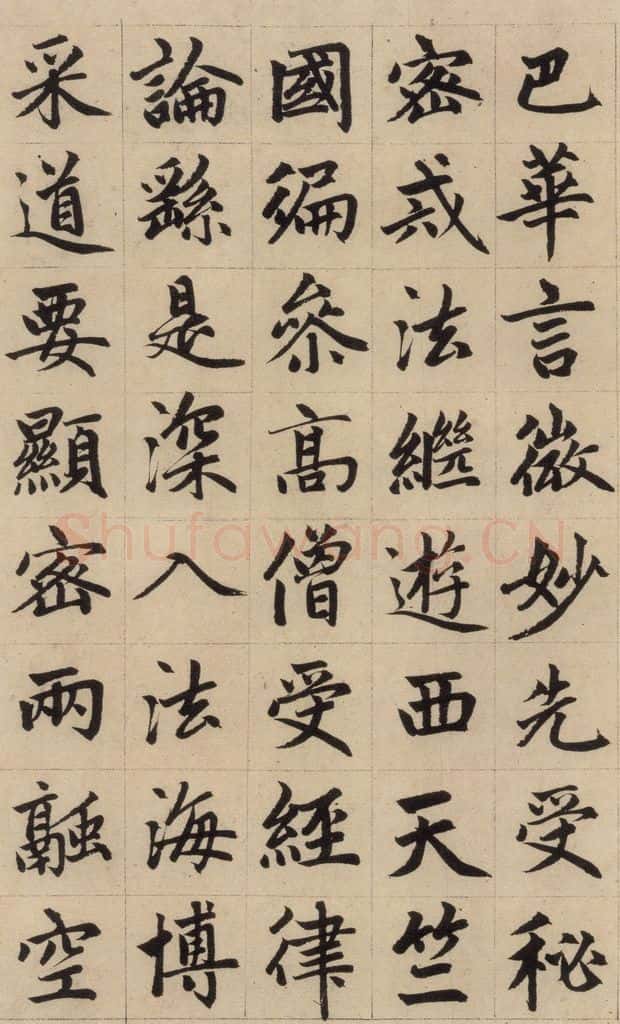 巴華言微妙先受秘
密戒法繼遊西天竺
國徧參高僧受經律
論繇是深入法海博
采道要顯密兩融空
Shufawang.CN